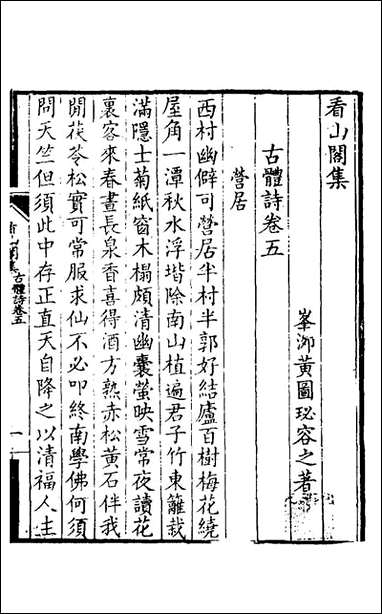 看山閣集
峯泖黃圖珌容之著
古體詩卷五
營居
西村幽僻可營居半村半郭好結廬百樹梅花繞
屋角一潭秋水浮堦除南山植遍君子竹東籬栽
滿隱士菊紙窗木榻頗清幽囊螢映雪常夜讀花
裏客來春晝長泉香喜得酒方熟赤松黃石伴我
閒茯苓松實可常服求仙不必叩終南學佛何須
問天竺但須此中存正直天自降之以清福人生
看山閣集
古體詩卷五
一